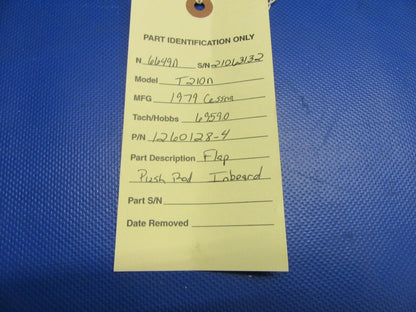 PART IDENTIFICATION ONLY
N 6649N S/N 21063132
Model T210N
MFG 1979 Cessna
Tach/Hobbs 6959.0
P/N 1260128-4
Part Description Flap
Push Rod Inboard
Part S/N
Date Removed